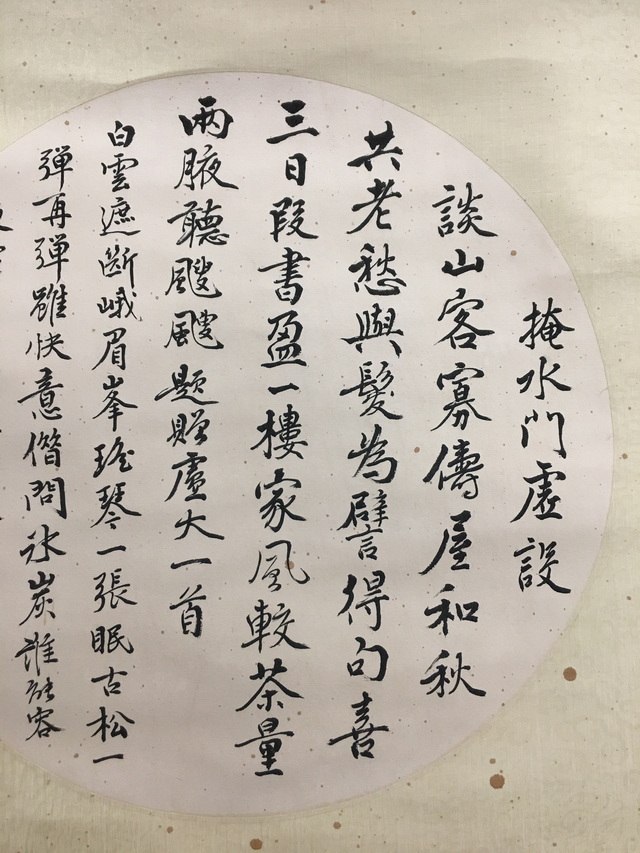 掩水門虛設
談山客寡儔屋和秋
共老愁與髮為譬得句喜
三日段書盈一樓家風較茶量
兩腋聽颼颼題贈盧大一首
白雲遮斷峨眉峯瑤琴一張眠古松一
彈再彈雖快意借問冰炭誰能容